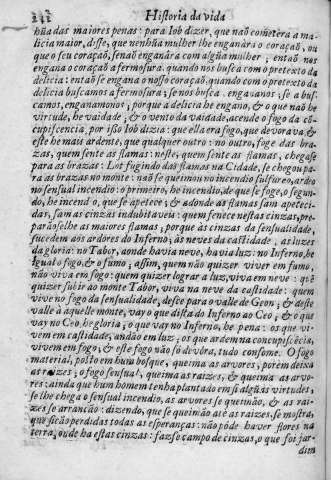 242 Historia da vida
hũa das maiores penas: para Iob dizer, que naõ cometera a ma-
licia maior, disse, que nenhũa mulher lhe enganára o coraçaõ, ou
que o seu coraçaõ, senaõ enganára com algũa mulher; entaõ nos
engana o coraçaõ a fermosura, quando nos busca com o pretexto da
delicia: entaõ se engana o nosso coraçaõ, quando com o pretexto da
delicia buscamos a fermosura; se nos busca, engananos; se a bus-
camos, enganamonos; porque a delicia he engano, & o que naõ he
virtude, he vaidade, & o vento da vaidade, acende o fogo da cõ-
cupiscencia, por isso Iob dizia: que ella era fogo, que devorava, &
este he mais ardente, que qualquer outro: no outro, foge das bra-
zas, quem sente as flamas: neste, quem sente as flamas, chegase
para as brazas: Lot fugindo das flamas na Cidade, se chegou pa-
ra as brazas no monte: naõ se queimou no incendio sulfureo, ardeo
no sensual incendio: o primeiro, he incendio, de que se foge, o segun-
do, he incendio, que se apetece; & adonde as flamas sam apeteci-
das, sam as cinzas indubitaveis: quem fenece nestas cinzas, pre-
paraõselhe as maiores flamas; porque às cinzas da sensualidade,
sucedem aos ardores do Inferno; às neves da castidade, as luzes
da gloria: no Tabor, aonde havia neve, havia luz: no Inferno, he
igual o fogo, & o fumo; assim, quem naõ quizer viver em fumo,
naõ viva em fogo: quem quizer lograr a luz, viva em neve: quẽ
quizer subir ao monte Tabor, viva na neve da castidade: quem
vive no fogo da sensualidade, desce para o valle de Geon; & deste
valle à aquelle monte, vay o que dista do Inferno ao Ceo; & o que
vay no Ceo, he gloria; o que vay no Inferno, he pena: os que vi-
vem em castidade, andão em luz; os que ardem na concupiscẽcia,
vivem em fogo, & este fogo não só devóra, tudo consome. O fogo
material, posto em hum bosque, queima as arvores, porém deixa
as raizes; o fogo sensual, queima as raizes, & queima as arvo-
res: ainda que hum homem tenha plantado em si algũas virtudes,
se lhe chega o sensual incendio, as arvores se queimão, & as rai-
zes se arrancão: dizendo, que se queimão até as raizes, se mostra,
que ficão perdidas todas as esperanças: não póde haver flores na
terra, onde ha estas cinzas: fazse campo de cinzas, o que foi jar-
dim